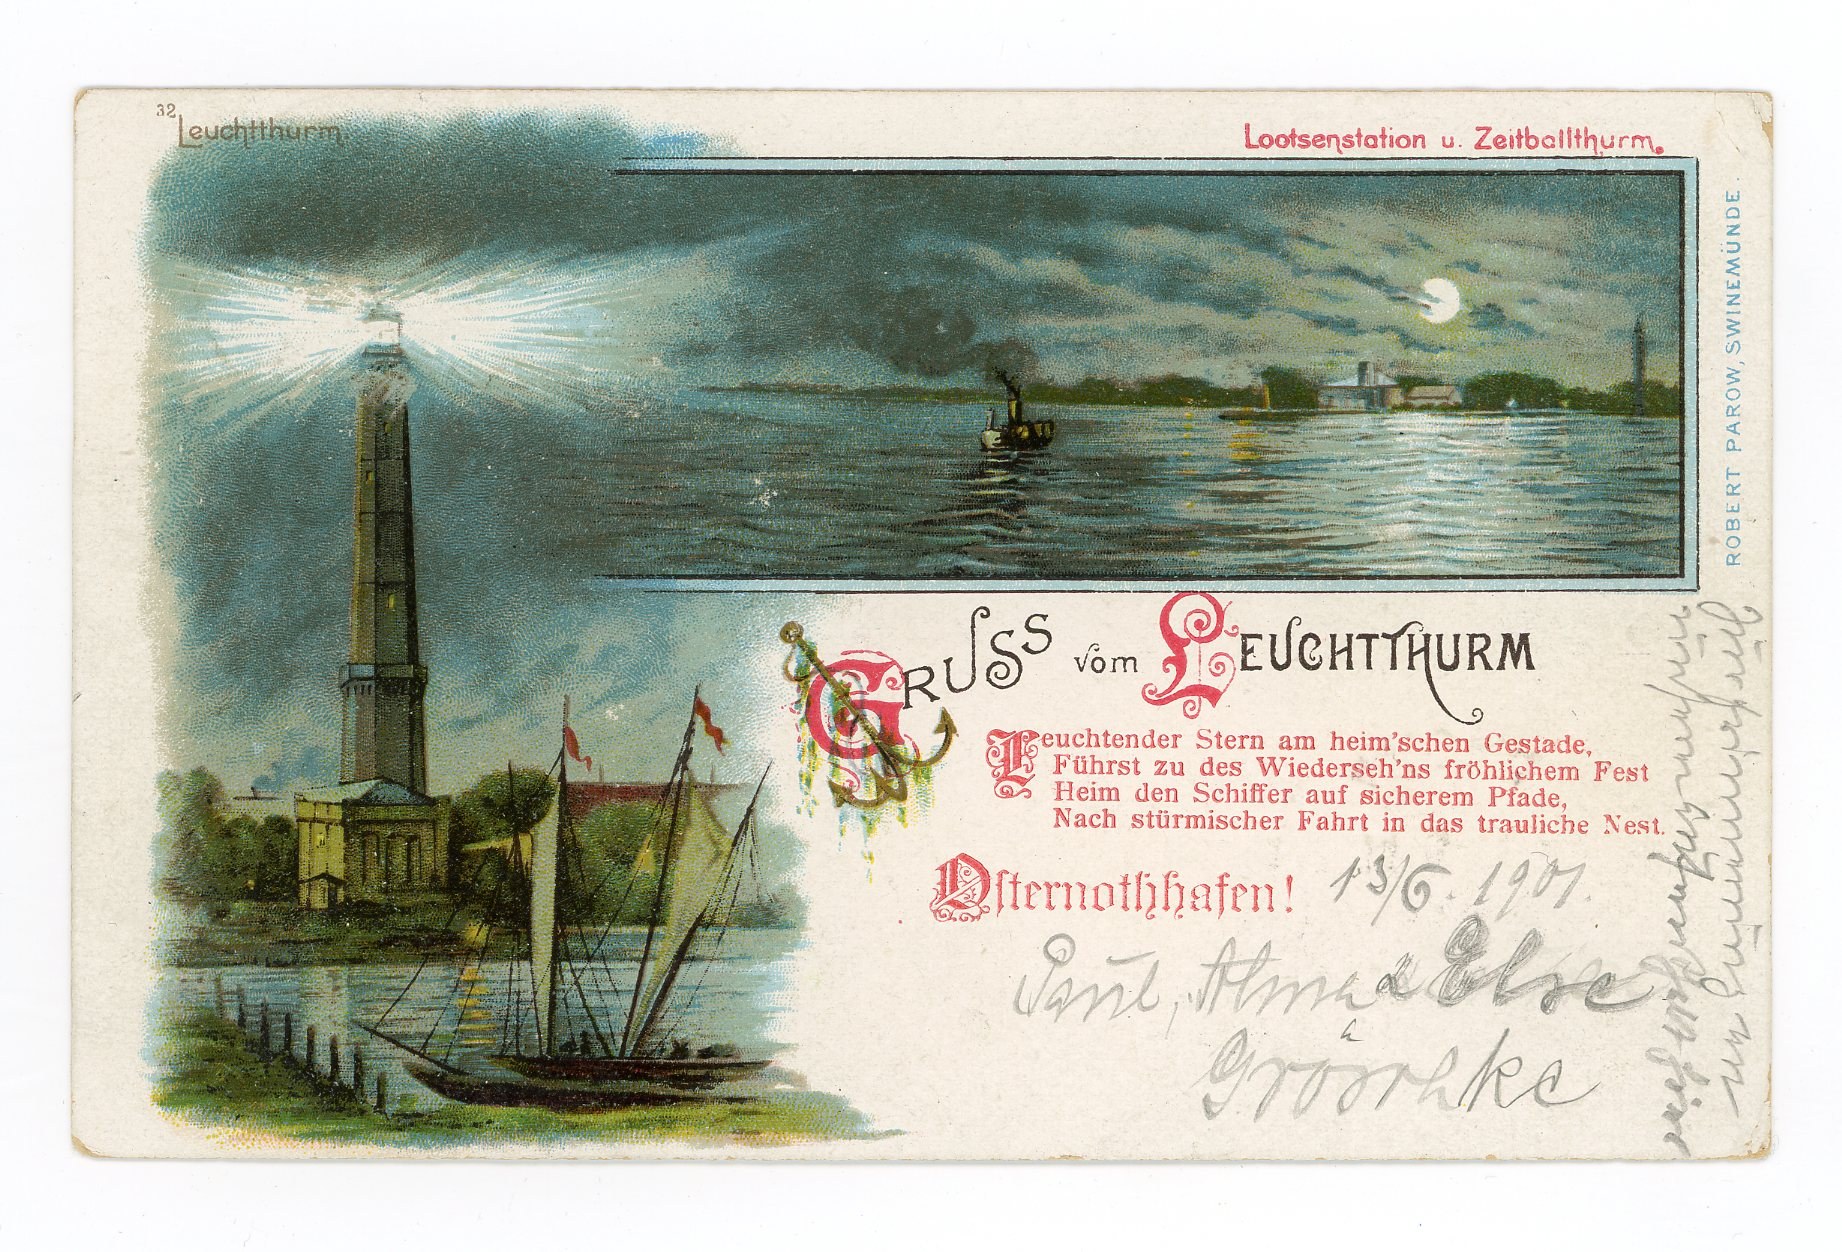 32
Leuchtthurm.
Lootsenstation u. Zeitballthurm.
ROBERT PAROW, SWINEMÜNDE.
GRUSS vom LEUCHTTHURM
Leuchtender Stern am heim'schen Gestade,
Führst zu des Wiederseh'ns fröhlichem Fest
Heim den Schiffer auf sicherem Pfade,
Nach stürmischer Fahrt in das trauliche Nest.
Osternothhafen! 13/6. 1901.
Paul, Alma & Else
Gröschke